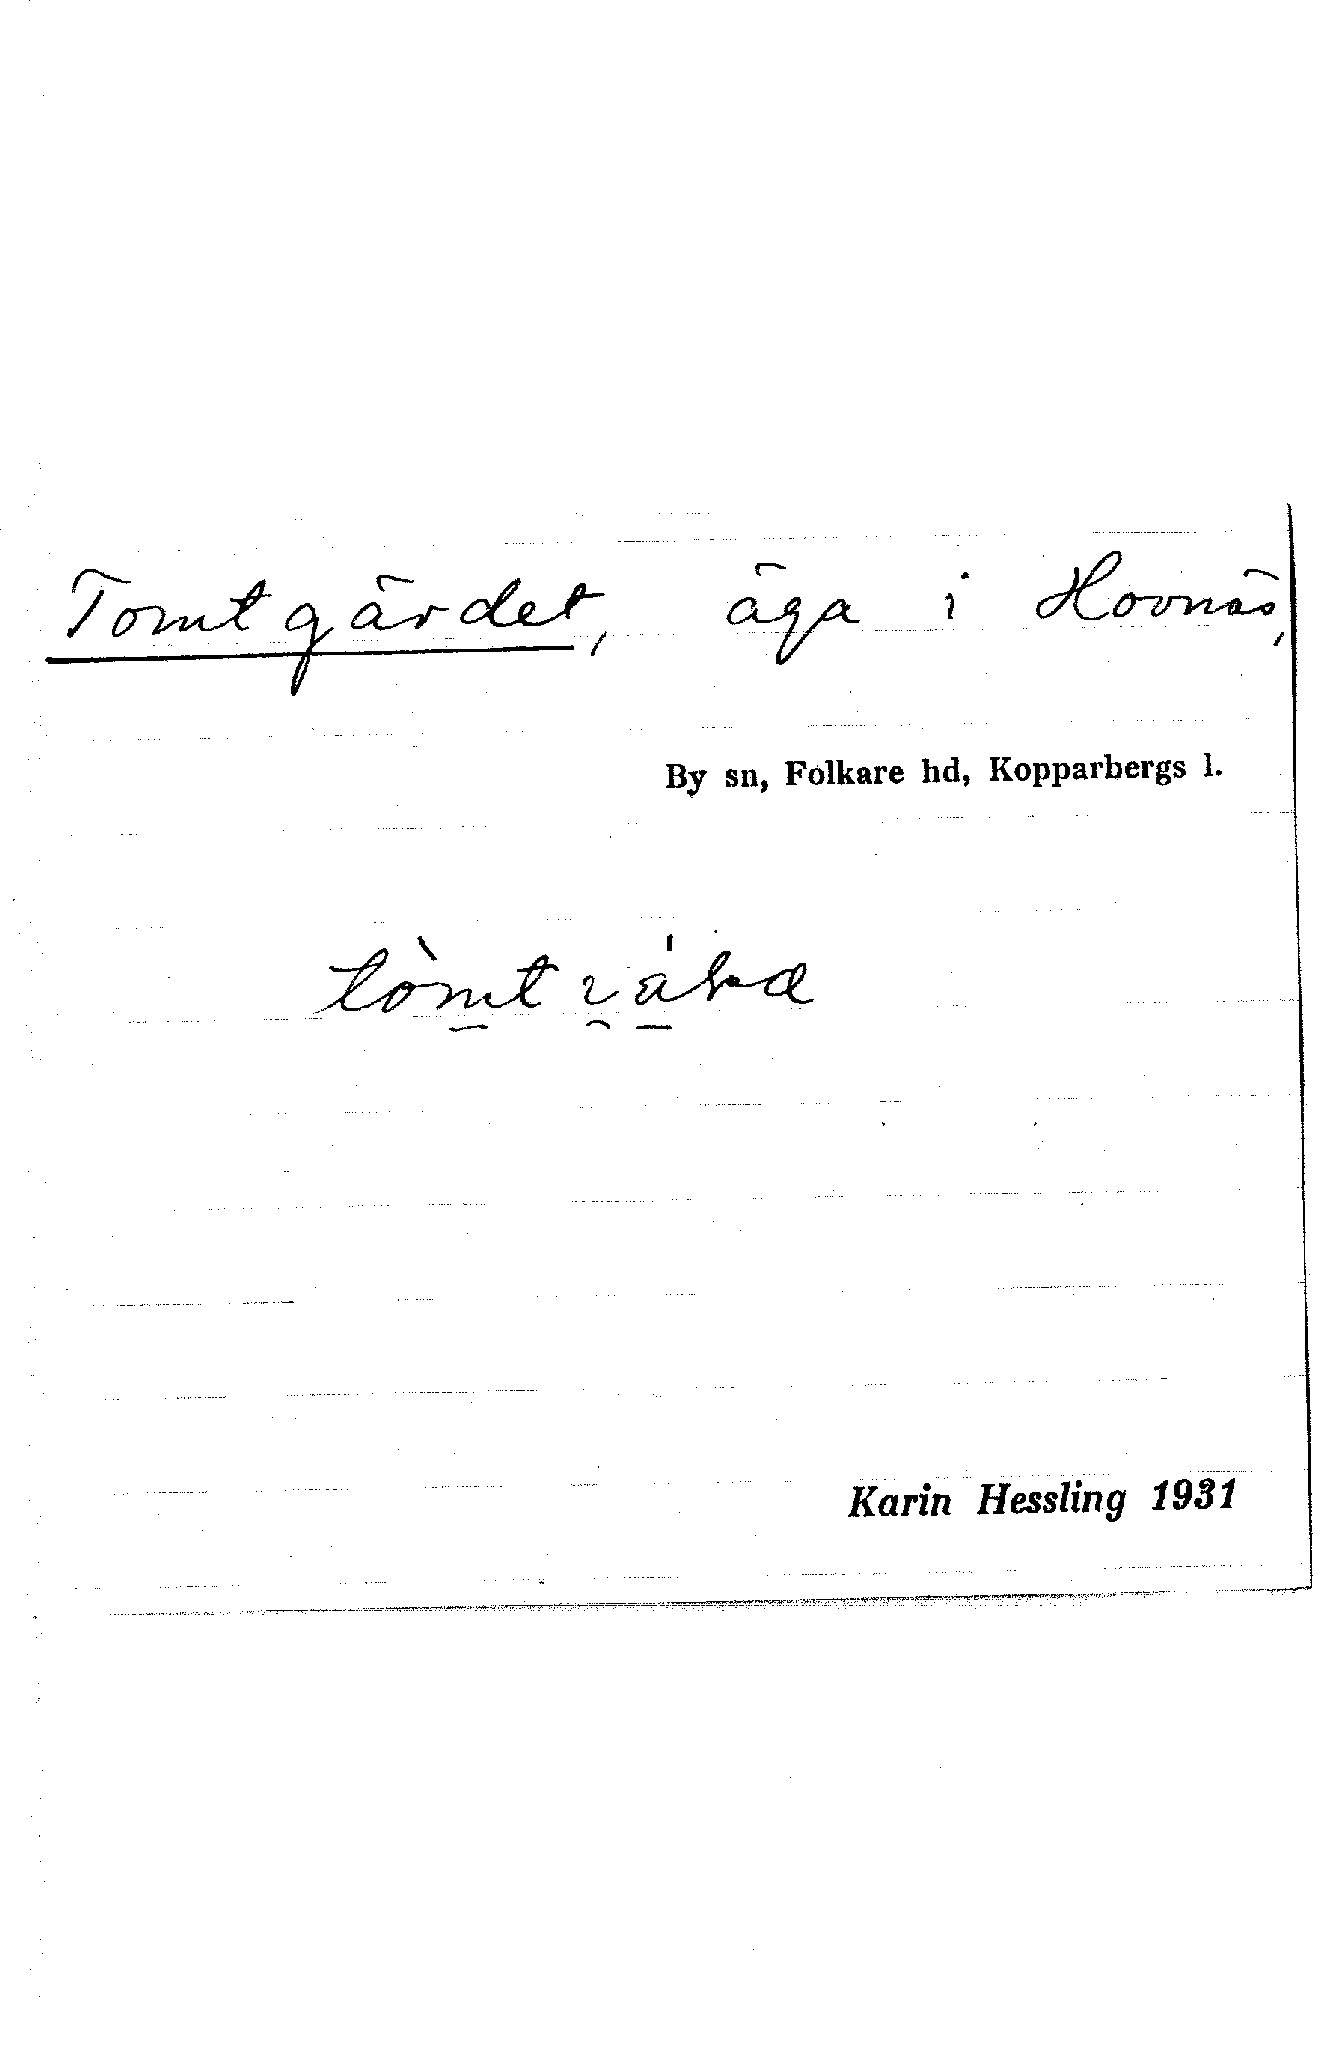 Tomtgärdet, äga i Hovnäs,
By sn, Folkare hd, Kopparbergs l.
Karin Hessling 1931